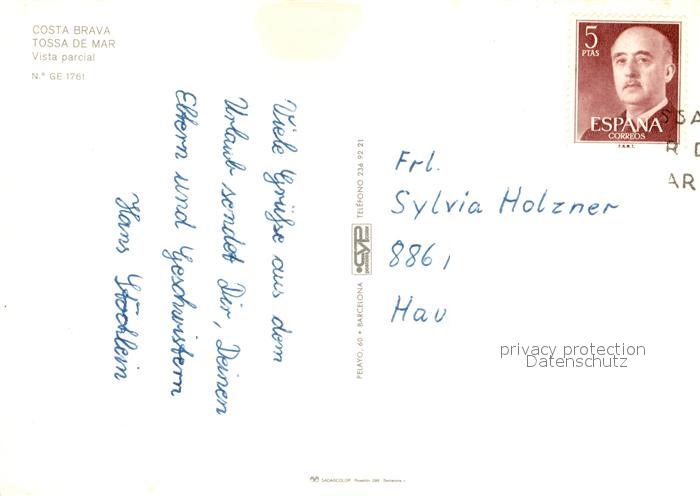 COSTA BRAVA
TOSSA DE MAR
Vista parcial
N.° GE 1761
Viele Grüße aus dem
Urlaub sendet Dir, Deinen
Eltern und Geschwistern
Hans Stöchlein
PELAYO, 60 • BARCELONA TELÉFONO 236 92 21
5
PTAS
ESPAÑA
CORREOS
F.N.M.T.
SSA
R D
AR
Frl.
Sylvia Holzner
8861
Hau
privacy protection
Datenschutz